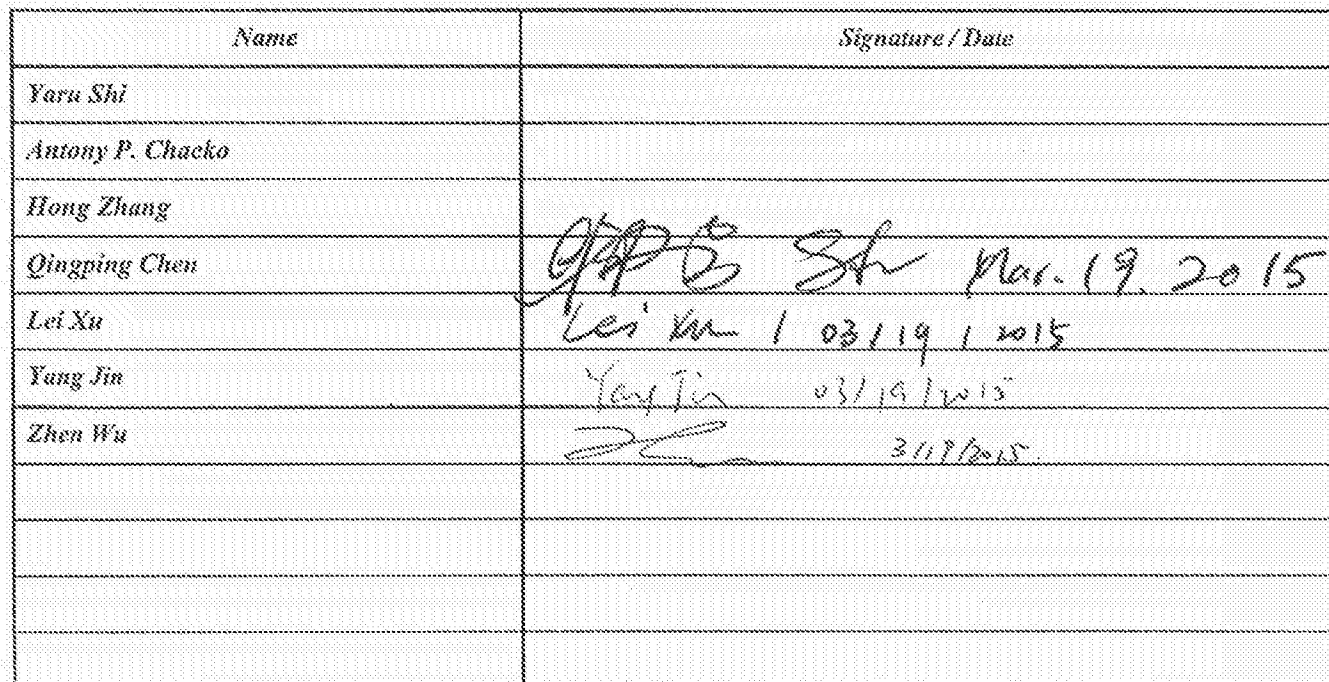 Name Signature / Date
Yaru Shi
Antony P. Chacko
Hong Zhang
Qingping Chen Mar. 19. 2015
Lei Xu Lei Xu / 03 / 19 / 2015
Yang Jin Yang Jin 03/19/2015
Zhen Wu 3/19/2015.